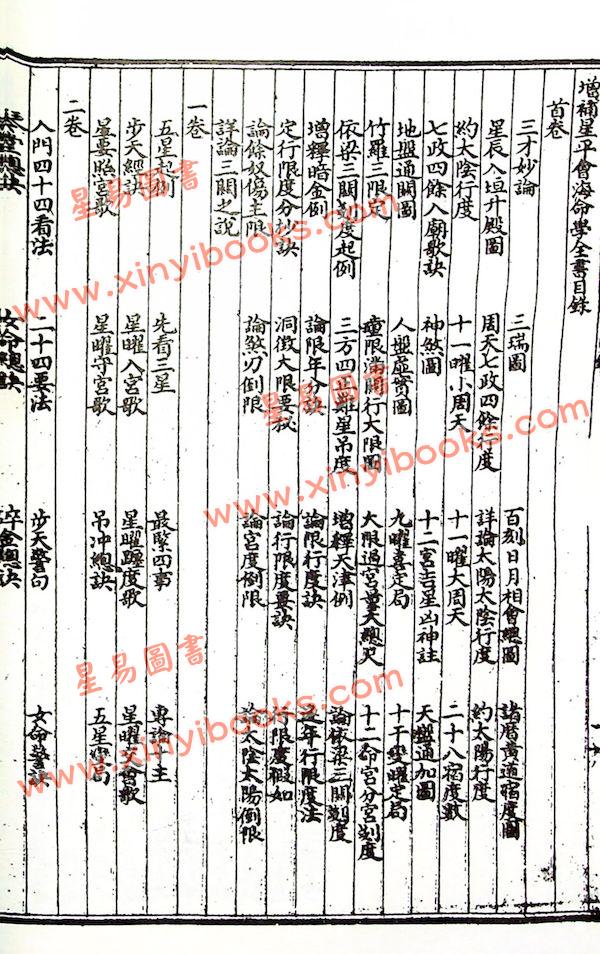 增補星平會海命學全書目錄
首卷
三才妙論 三瑞圖 百刻日月相會總圖 諸曆黃道宿度圖
星辰入垣升殿圖 周天七政四餘行度 詳論太陽太陰行度 約太陽行度
約太陰行度 十一曜小周天 十一曜大周天 二十八宿度數
七政四餘入廟歌訣 神煞圖 十二宮吉星凶神註 天盤通加圖
地盤通關圖 人盤虛實圖 九曜喜定局 十干變曜定局
竹羅三限定 童限滿關行大限圖 大限過宮量天總尺 十二命宮分宮刻度
依梁三關刻度起例 三方四正難星吊度 增釋天津例 論依梁三關刻度
增釋暗金例 論限年分訣 論限行度訣 逐年行限度法
定行限度分抄訣 洞微大限要哉 論行限度要訣 行限度假如
論餘奴傷主限 論煞刃倒限 論宮度倒限 論太陰太陽倒限
詳論三關之說
一卷
五星起例 先看三星 最緊四事 專論十主
步天經訣 星曜入宮歌 星曜躔度歌 星曜交會歌
星要照宮歌 星曜守宮歌 吊冲總訣 五星 局
二卷
入門四十四看法 二十四要法 步天警句 女命警訣
總訣 女命總訣 碎金總訣
星易圖書
www.xinyibooks.com
星易圖書
www.xinyibooks.com
星易圖書
www.xinyibooks.com
星易圖書
www.xinyibooks.com